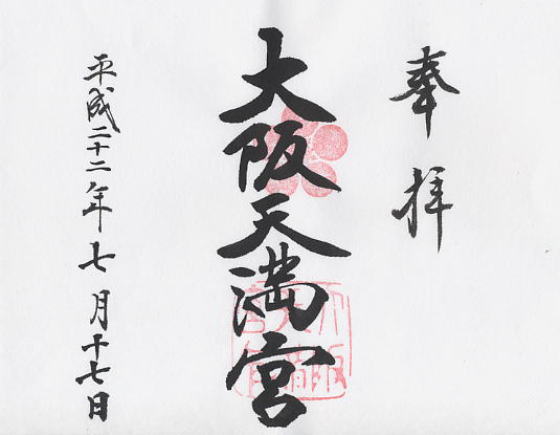 奉拝
大阪天満宮
平成二十二年七月十七日